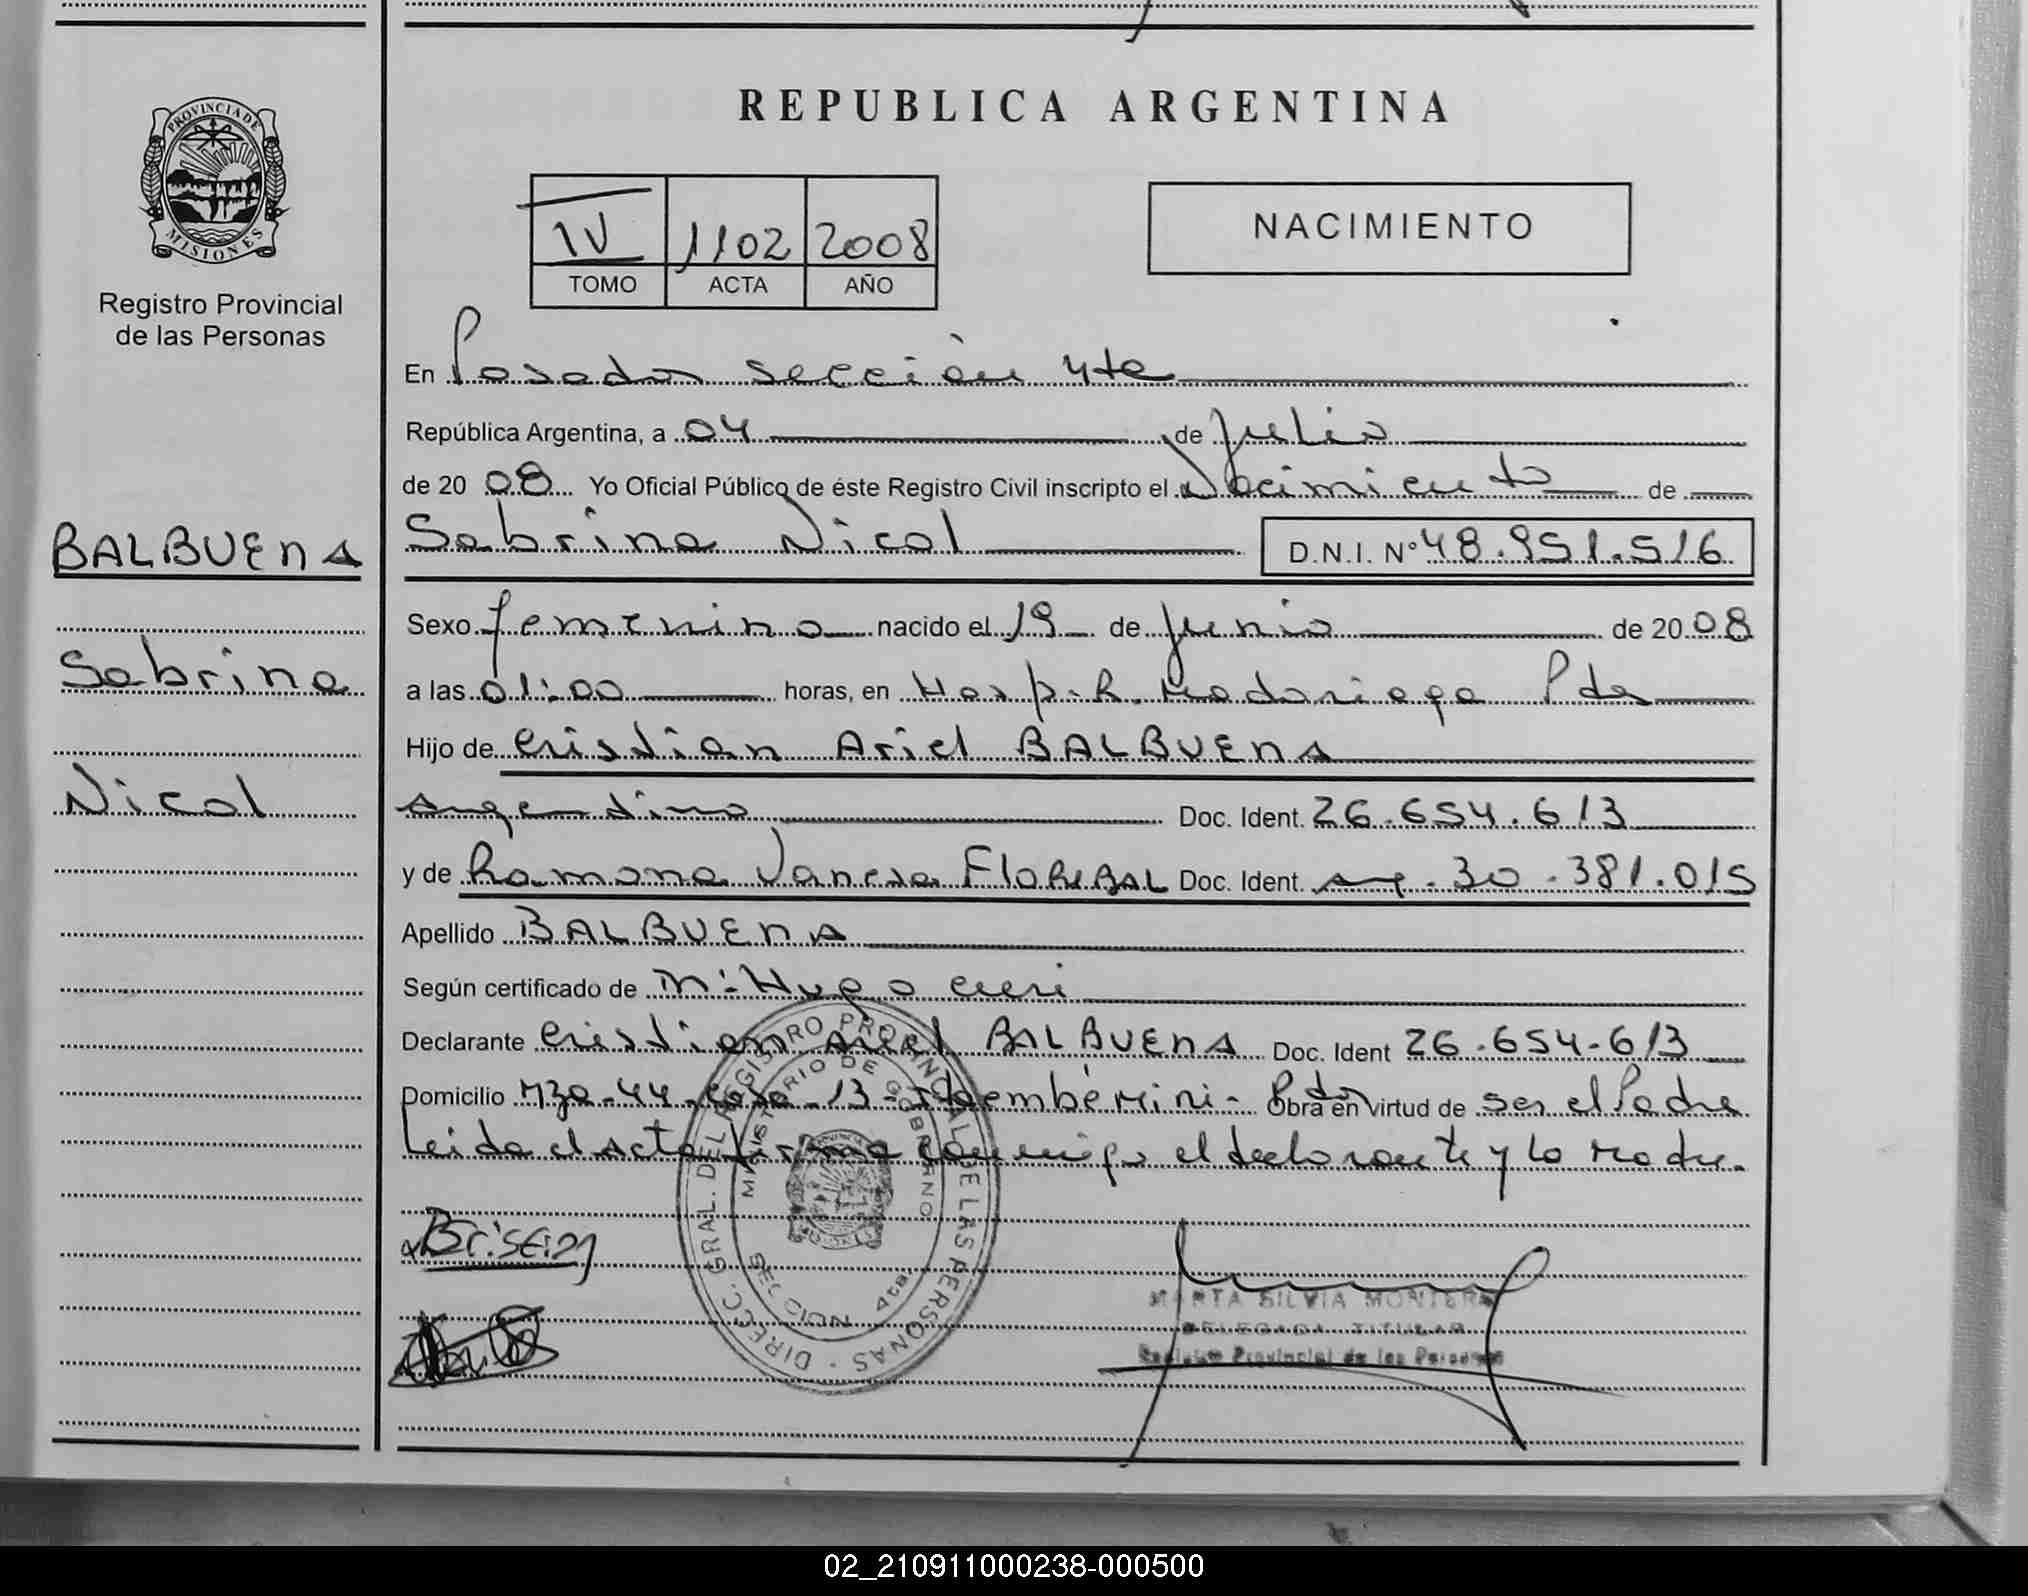 PROVINCIA DE
MISIONES
Registro Provincial
de las Personas
BALBUENA
Sabrina
Nicol
REPUBLICA ARGENTINA
IV 1102 2008
TOMO ACTA AÑO
NACIMIENTO
En Posadas sección 4ta
República Argentina, a 04 de Julio
de 20 08 Yo Oficial Público de éste Registro Civil inscripto el Nacimiento de
Sabrina Nicol D.N.I. N° 48.951.516
Sexo femenino nacido el 19 de Junio de 20 08
a las 01:00 horas, en Hosp. R. Madariaga Pdas
Hijo de Cristian Ariel BALBUENA
Argentino Doc. Ident. 26.654.613
y de Ramona Vanesa FLOREBAL Doc. Ident. Arg. 30.381.015
Apellido BALBUENA
Según certificado de M: Hugo
Declarante Cristian Ariel BALBUENA Doc. Ident 26.654.613
Domicilio Mza-44-Casa-13-Itaembé Mini-Pdas Obra en virtud de ser el Padre
Leida el Acta firma conmigo el declarante y la Madre.
DIREC. GRAL. DEL REGISTRO PROVINCIAL DE LAS PERSONAS
MINISTERIO DE GOBIERNO
SECCION 4ta.
MARTA SILVIA MONTERO
DELEGADA TITULAR
Registro Provincial de las Personas
02_210911000238-000500